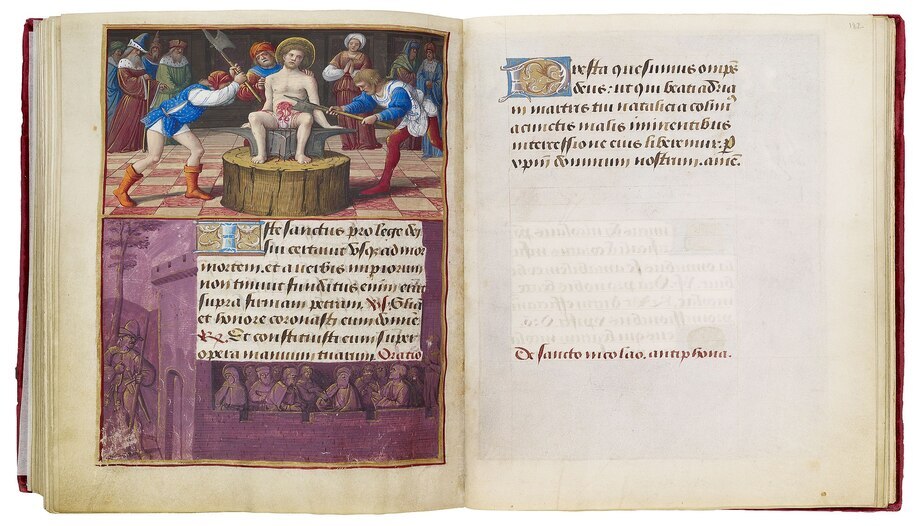 Iste sanctus pro lege dei
sui certauit vsq ad mor
mortem. et a uerbis impiorum
non timuit fundatus enim erat
supra firmam petram. V. Glia
et honore coronasti eum dnie.
R. Et constituisti eum super
opera manuum tuarum. Oratio
Presta quesumus omps
deus: ut qui beati adria
ni martiris tui natalicia colim
a cunctis malis iminentibus
intercessione eius liberemur. P
xpm dominum nostrum. ame.
De sancto nicolao. antiphona.